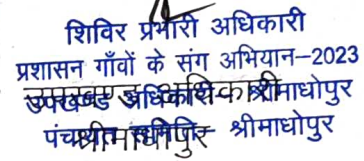 शिविर प्रभारी अधिकारी
प्रशासन गाँवों के संग अभियान–2023
उपखण्ड अधिकारी श्रीमाधोपुर
पंचायत समिति– श्रीमाधोपुर